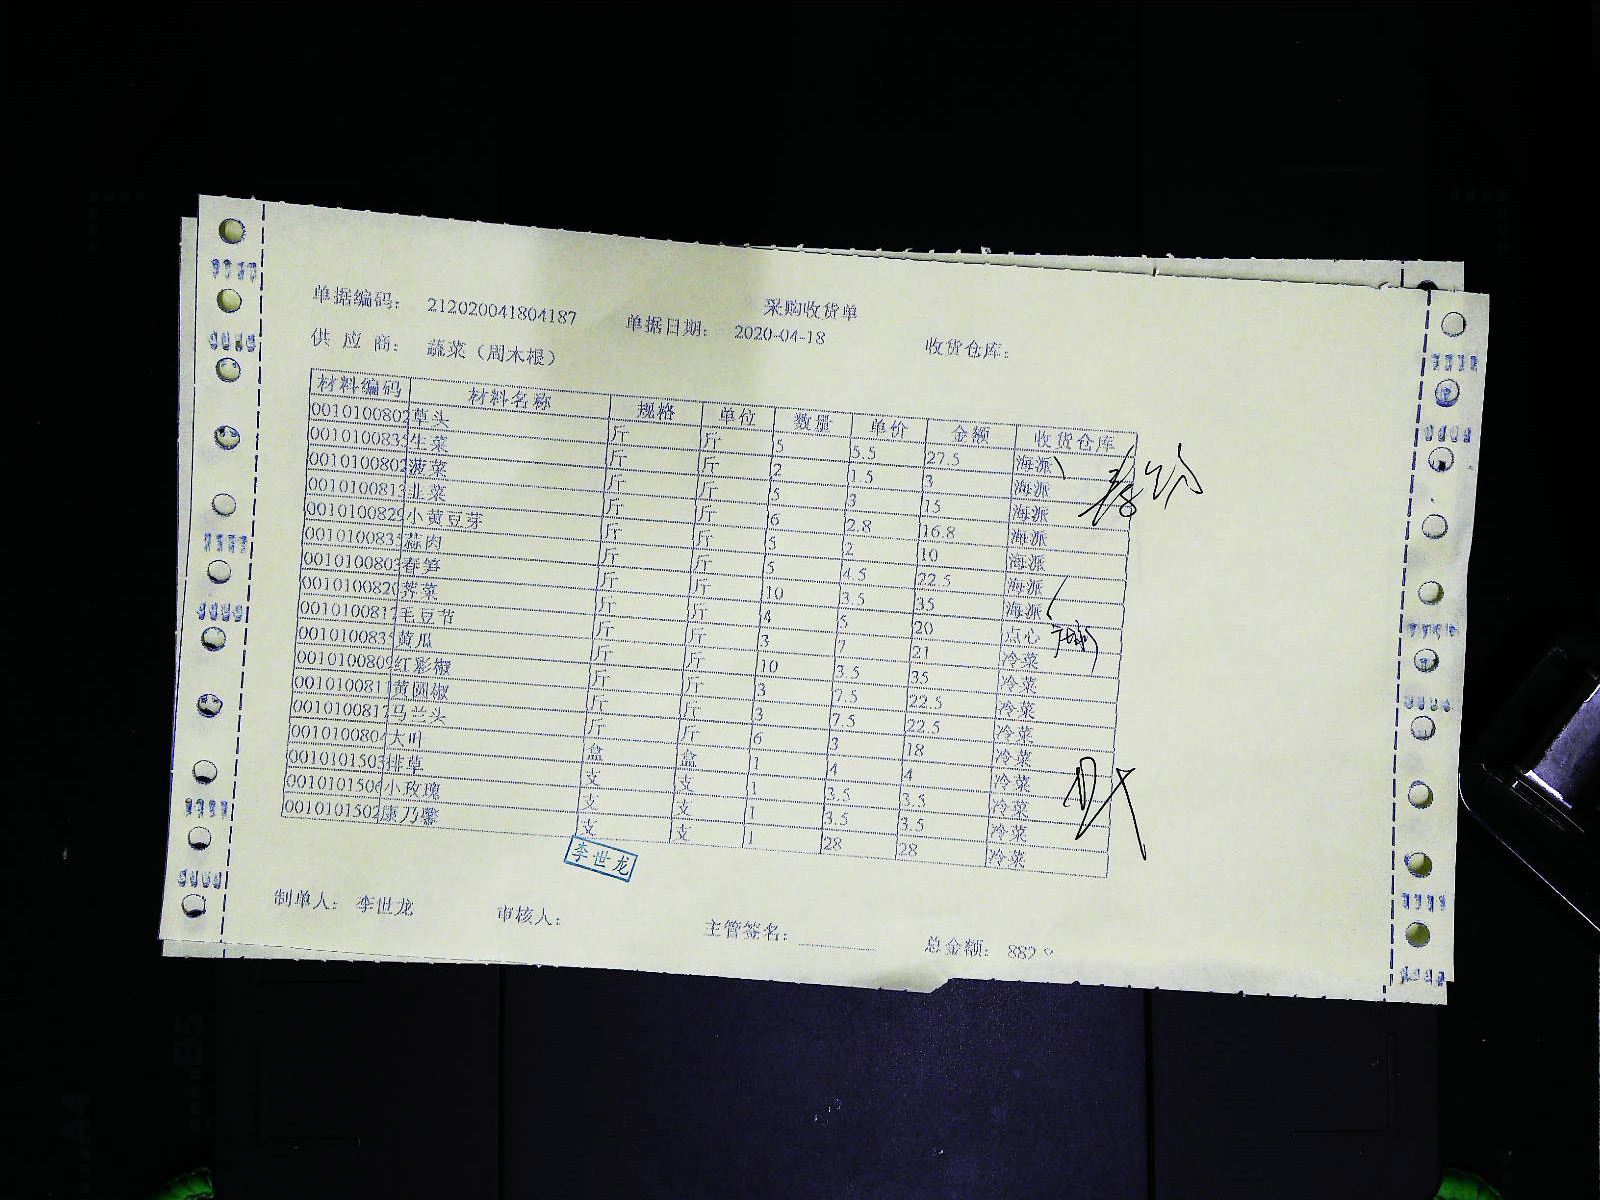 采购收货单
单据编码： 212020041804187 单据日期： 2020-04-18 收货仓库：
供 应 商： 蔬菜（周木根）
材料编码 材料名称 规格 单位 数量 单价 金额 收货仓库
0010100802 草头 斤 斤 5 5.5 27.5 海派
0010100835 生菜 斤 斤 2 1.5 3 海派
0010100802 菠菜 斤 斤 5 3 15 海派
0010100813 韭菜 斤 斤 6 2.8 16.8 海派
0010100829 小黄豆芽 斤 斤 5 2 10 海派
0010100835 蒜肉 斤 斤 5 4.5 22.5 海派
0010100803 春笋 斤 斤 10 3.5 35 海派
0010100820 荠菜 斤 斤 4 5 20 点心
0010100817 毛豆节 斤 斤 3 7 21 冷菜
0010100835 黄瓜 斤 斤 10 3.5 35 冷菜
0010100809 红彩椒 斤 斤 3 7.5 22.5 冷菜
0010100811 黄圆椒 斤 斤 3 7.5 22.5 冷菜
0010100817 马兰头 斤 斤 6 3 18 冷菜
0010100804 大叶 盒 盒 1 4 4 冷菜
0010101503 排草 支 支 1 3.5 3.5 冷菜
0010101506 小玫瑰 支 支 1 3.5 3.5 冷菜
0010101502 康乃馨 支 支 1 28 28 冷菜
李世龙
制单人： 李世龙 审核人： 主管签名： 总金额：